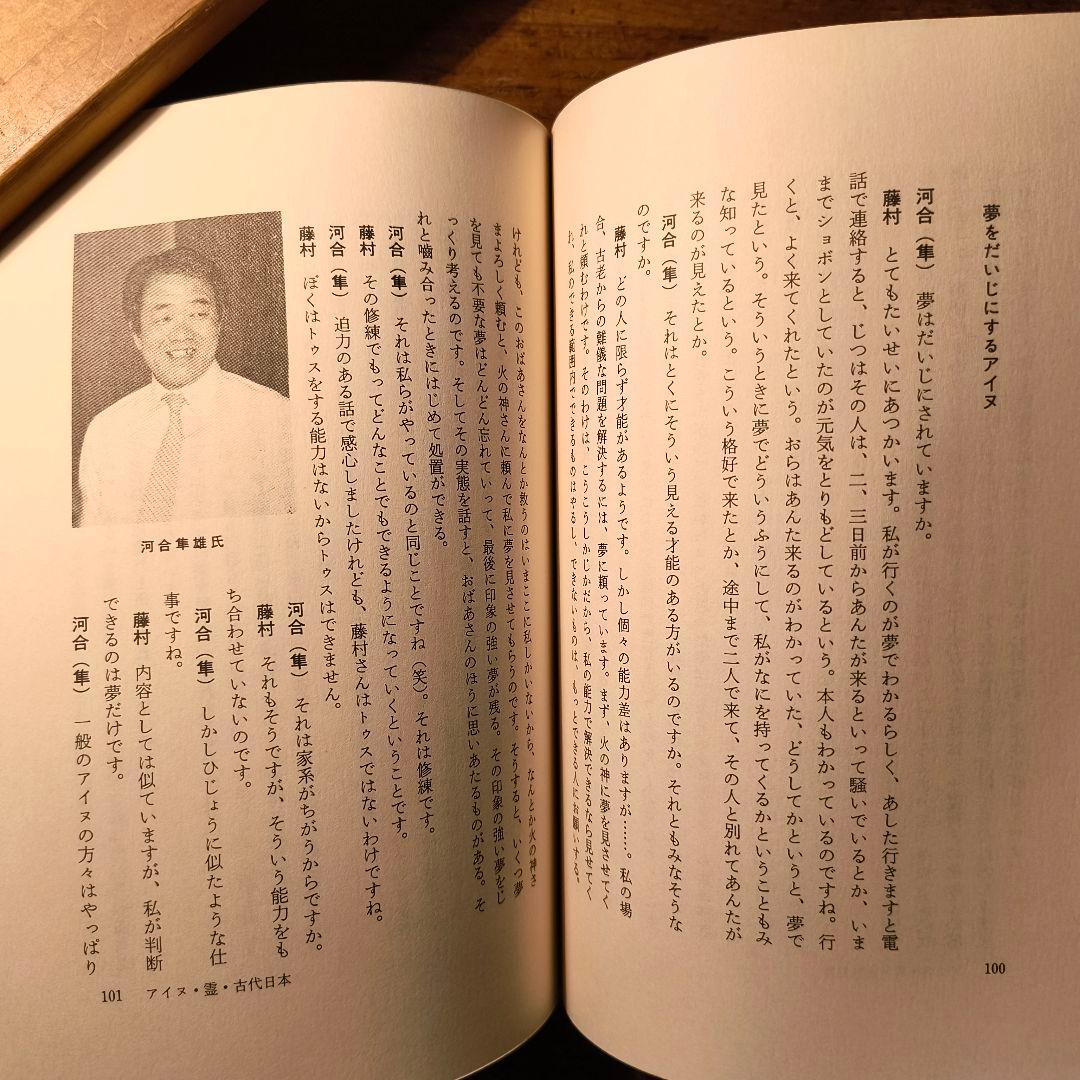 夢をだいじにするアイヌ
河合（隼）　夢はだいじにされていますか。
藤村　とてもたいせいにあつかいます。私が行くのが夢でわかるらしく、あした行きますと電
話で連絡すると、じつはその人は、二、三日前からあんたが来るといって騒いでいるとか、いま
までショボンとしていたのが元気をとりもどしているという。本人もわかっているのですね。行
くと、よく来てくれたという。おらはあんた来るのがわかっていた、どうしてかというと、夢で
見たという。そういうときに夢でどういうふうにして、私がなにを持ってくるかということもみ
な知っているという。こういう格好で来たとか、途中まで二人で来て、その人と別れてあんたが
来るのが見えたとか。
河合（隼）　それはとくにそういう見える才能のある方がいるのですか。それともみなそうな
のですか。
藤村　どの人に限らず才能があるようです。しかし個々の能力差はありますが……。私の場
合、古老からの難儀な問題を解決するには、夢に頼っています。まず、火の神に夢を見させてく
れと頼むわけです。そのわけは、こうこうしかじかだから、私の能力で解決できるなら見せてく
れ、私のできる範囲内でできるものはやるし、できないものは、もっとできる人にお願いする。
100
けれども、このおばあさんをなんとか救うのはいまここに私しかいないから、なんとか火の神さ
まよろしく頼むと、火の神さんに頼んで私に夢を見させてもらうのです。そうすると、いくつ夢
を見ても不要な夢はどんどん忘れていって、最後に印象の強い夢が残る。その印象の強い夢をじ
っくり考えるのです。そしてその実態を話すと、おばあさんのほうに思いあたるものがある。そ
れと噛み合ったときにはじめて処置ができる。
河合（隼）　それは私らがやっているのと同じことですね（笑）。それは修練です。
藤村　その修練でもってどんなことでもできるようになっていくということです。
河合（隼）　迫力のある話で感心しましたけれども、藤村さんはトゥスではないわけですね。
藤村　ぼくはトゥスをする能力はないからトゥスはできません。
河合（隼）　それは家系がちがうからですか。
藤村　それもそうですが、そういう能力をも
ち合わせていないのです。
河合（隼）　しかしひじょうに似たような仕
事ですね。
藤村　内容としては似ていますが、私が判断
できるのは夢だけです。
河合（隼）　一般のアイヌの方々はやっぱり
河合隼雄氏
101　アイヌ・霊・古代日本